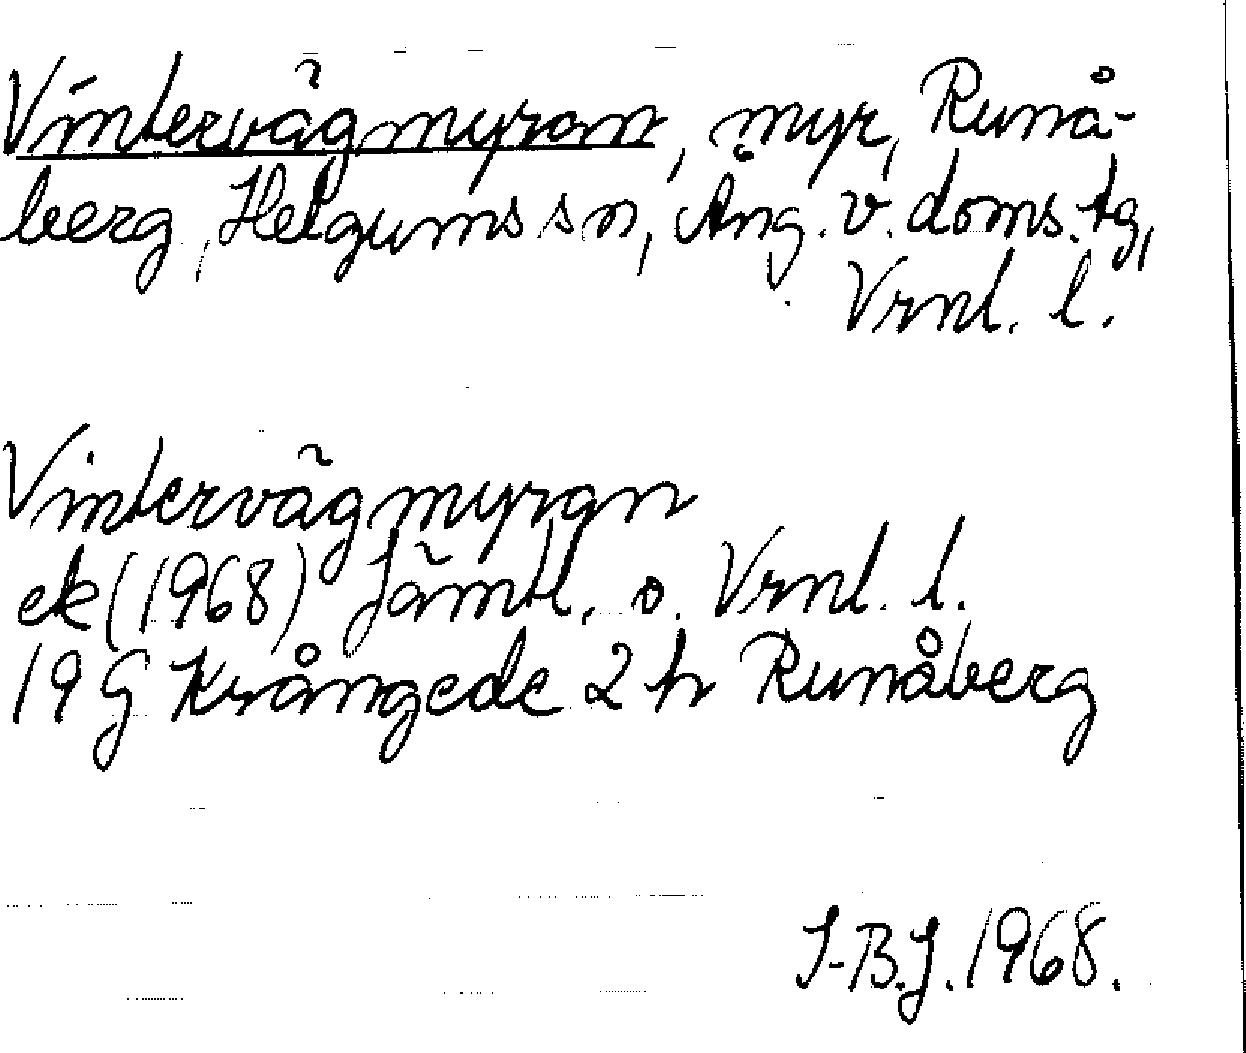 Vintervägmyran, myr, Runå-
berg, Helgums sn, Ång. v. doms. tg,
Vrnl. l.
Vintervägmyran
ek (1968) Jämtl. o. Vrnl. l.
19 G Krångede 2 h Runåberg
I-B.J. 1968.